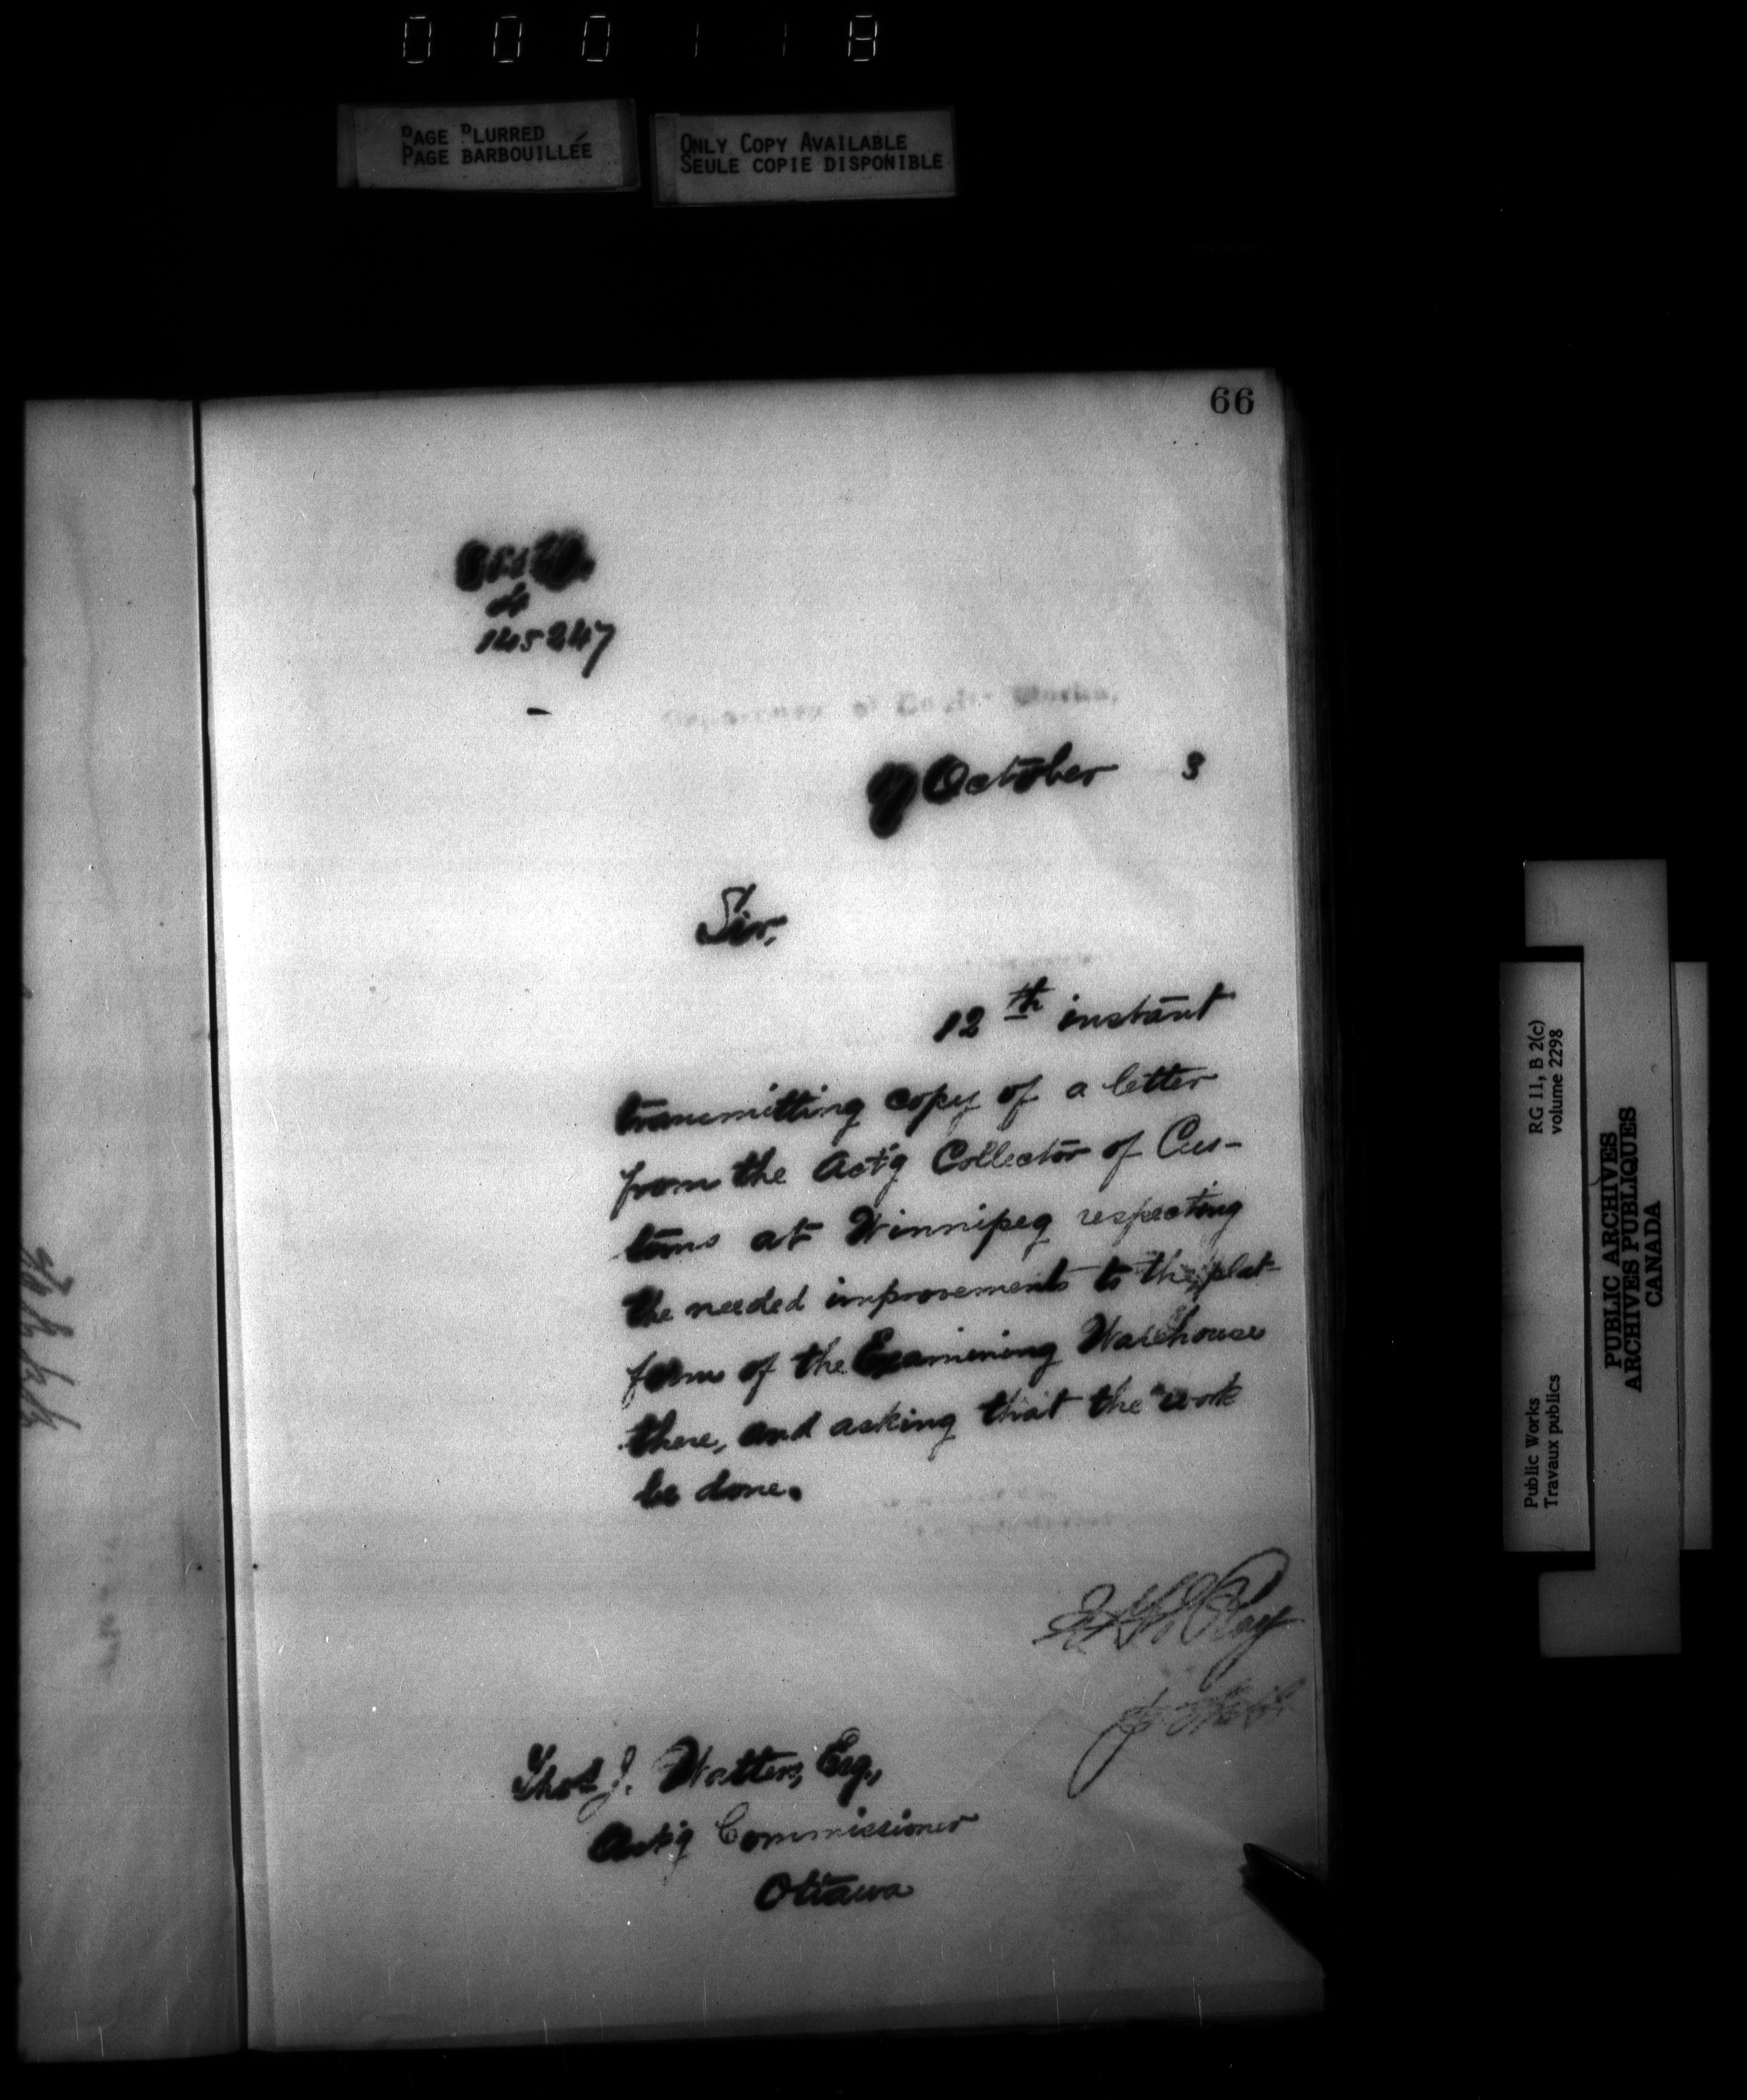 000118
PAGE BLURRED
PAGE BARBOUILLÉE
ONLY COPY AVAILABLE
SEULE COPIE DISPONIBLE
66
145247
October 3
Sir,
12th instant
transmitting copy of a letter
from the Act'g Collector of Cus-
toms at Winnipeg respecting
the needed improvements to the plat-
form of the Examining Warehouse
there, and asking that the work
be done.
Thos J. Watters, Esq.,
Act'g Commissioner
Ottawa
RG 11, B 2(c)
volume 2298
Public Works
Travaux publics
PUBLIC ARCHIVES
ARCHIVES PUBLIQUES
CANADA